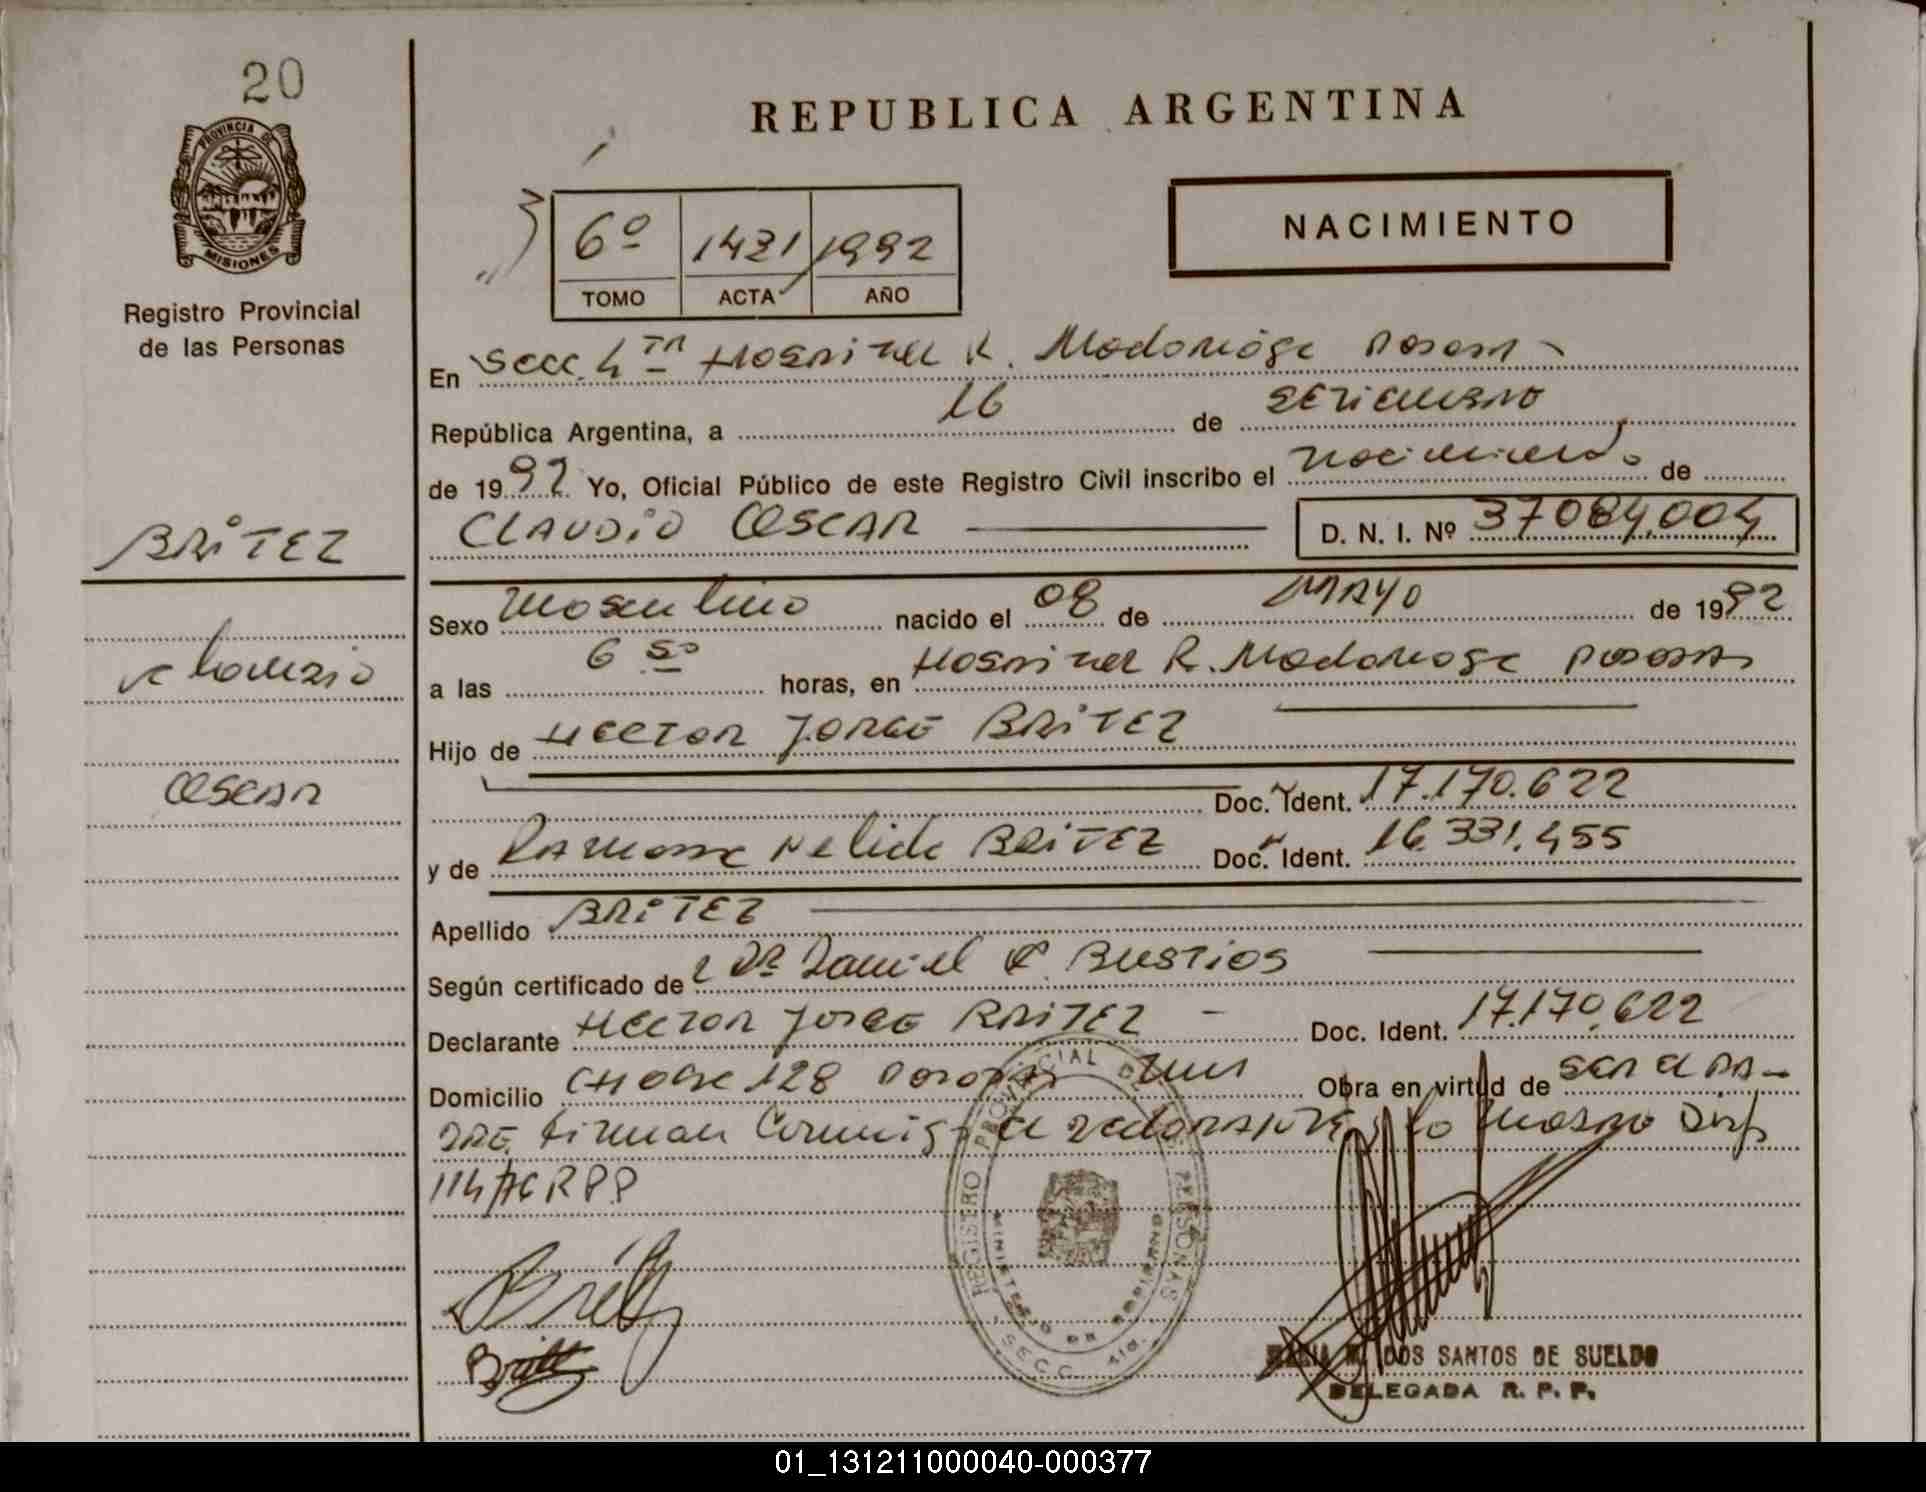 20
PROVINCIA DE
MISIONES
Registro Provincial
de las Personas
REPUBLICA ARGENTINA
NACIMIENTO
6º 1431 1992
TOMO ACTA AÑO
En Secc. 4ta Hospital R. Madariaga Posadas
República Argentina, a 16 de setiembre
de 1992 Yo, Oficial Público de este Registro Civil inscribo el nacimiento de
CLAUDIO OSCAR D. N. I. Nº 37084.004
BRITEZ
Claudio
OSCAR
Sexo Masculino nacido el 08 de MAYO de 1992
a las 6 50 horas, en Hospital R. Madariaga Posadas
Hijo de HECTOR JORGE BRITEZ
Doc. Ident. 17.170.622
y de Ramona Nelida BRITEZ Doc. Ident. 16.331.455
Apellido BRITEZ
Según certificado de Dr Daniel BUSTIOS
Declarante HECTOR JORGE BRITEZ Doc. Ident. 17.170.622
Domicilio CHACRA 128 Posadas Mnes Obra en virtud de ser el pa-
dre. Firman Conmigo el declarante y la madre Disp
114/76 RPP
REGISTRO PROVINCIAL DE LAS PERSONAS
MINISTERIO DE GOBIERNO
SECC. 4ta.
Britez
Britez
MARIA M. DOS SANTOS DE SUELDO
DELEGADA R. P. P.
01_131211000040-000377